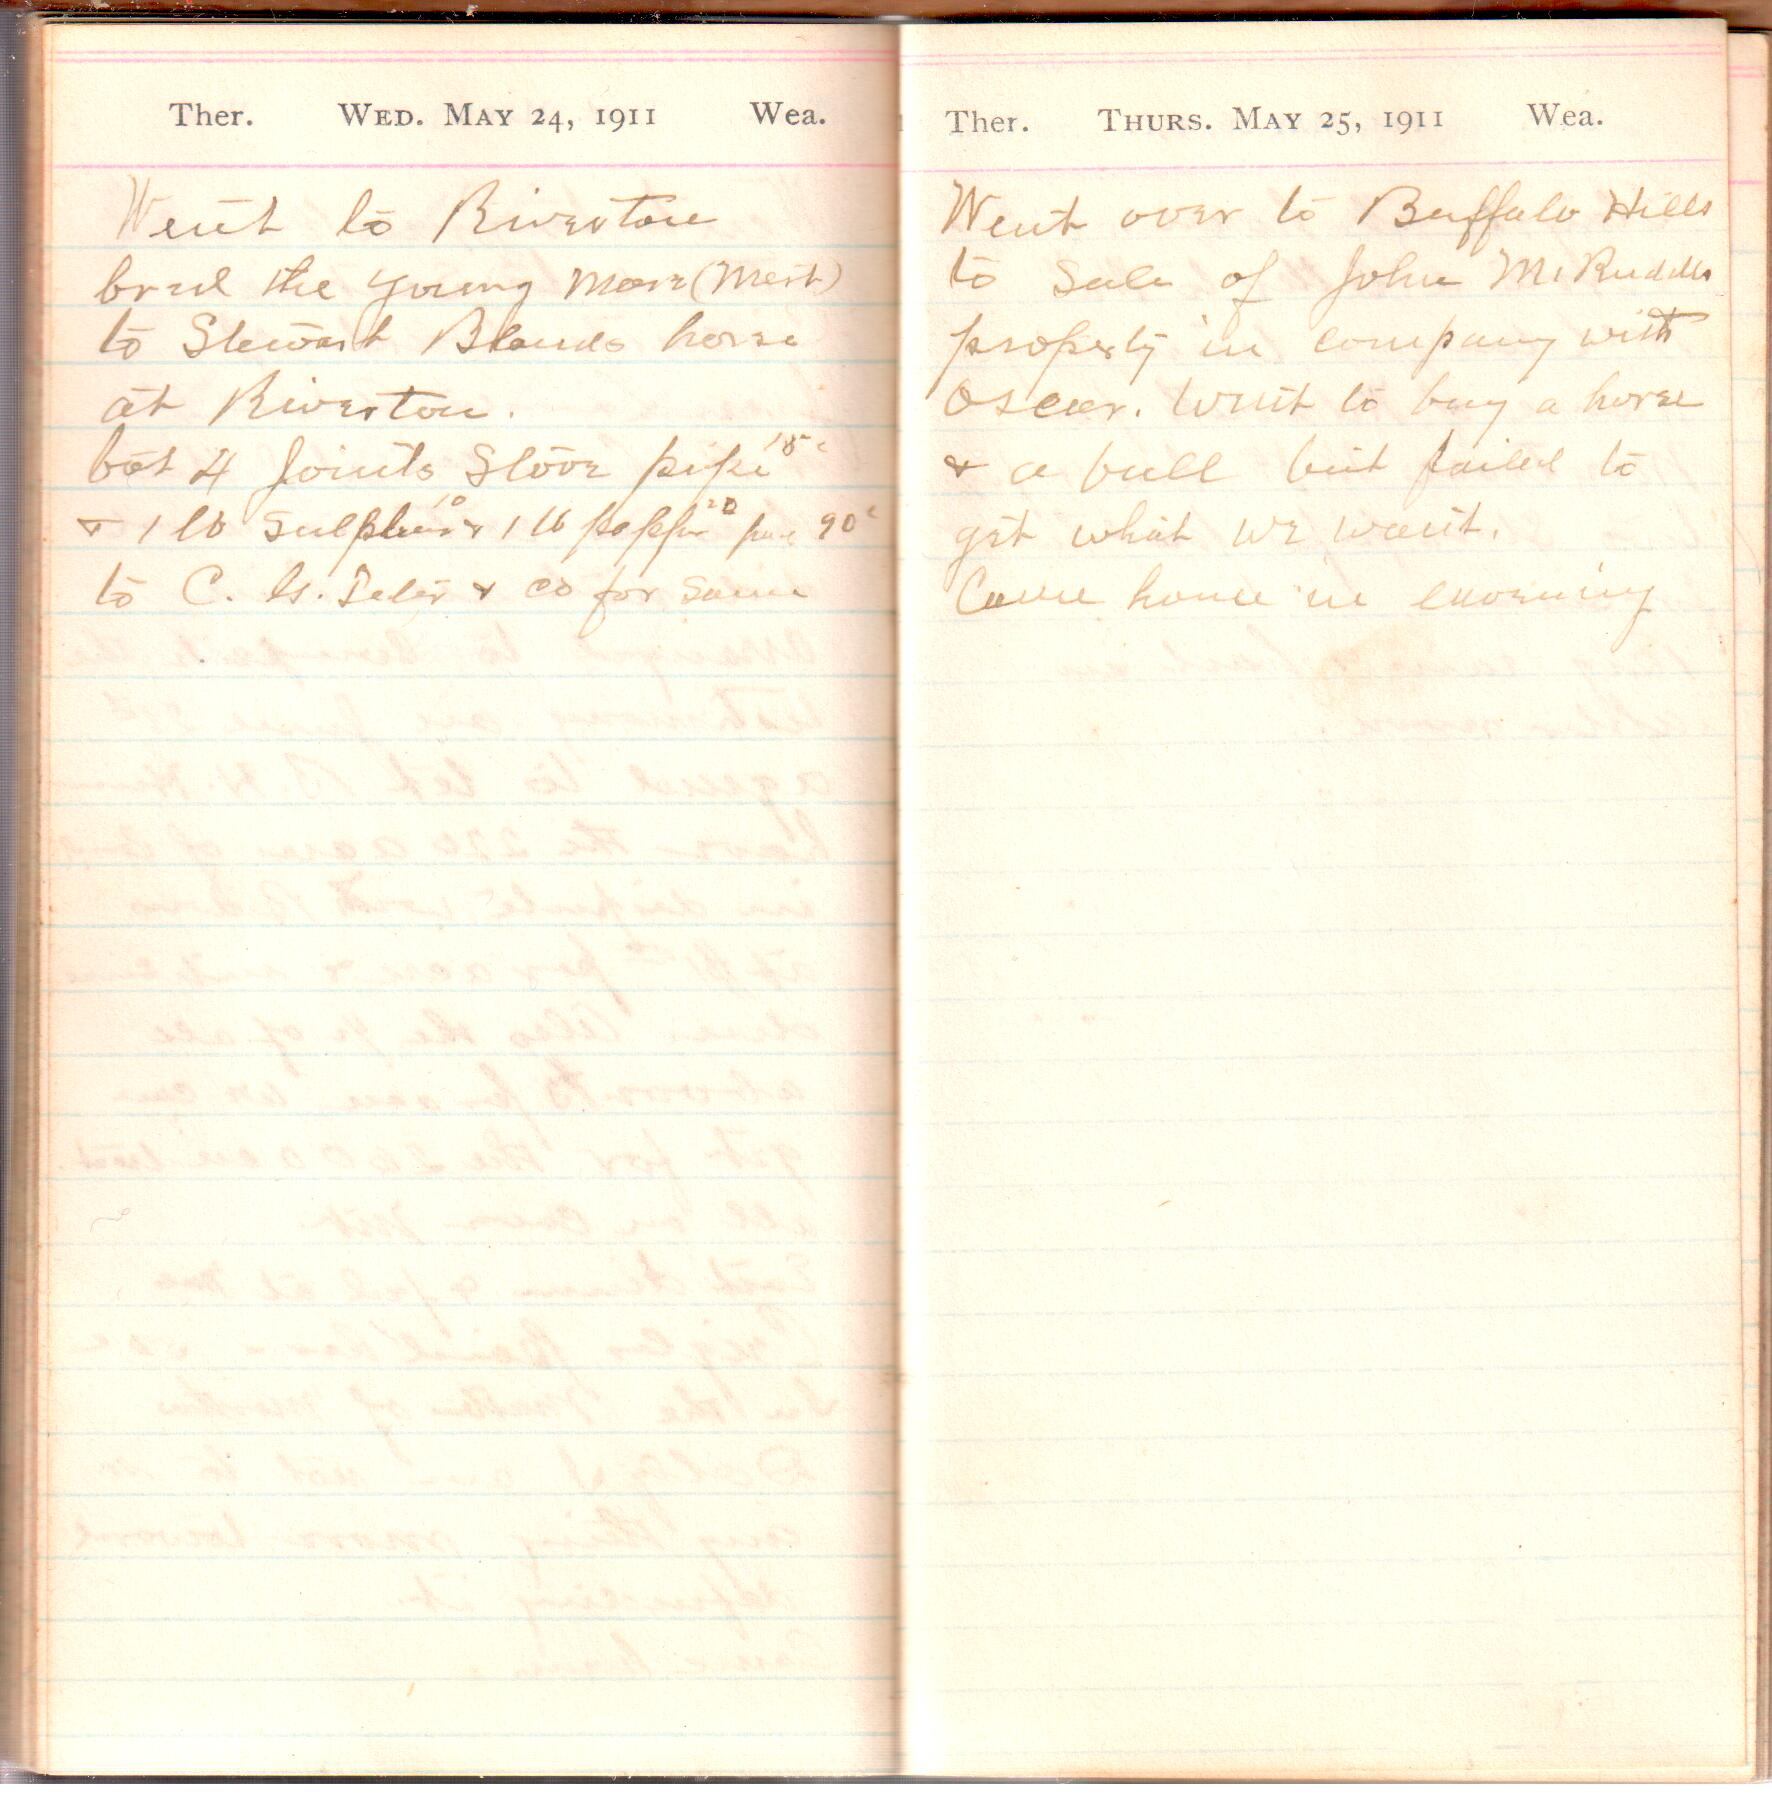 Ther. WED. MAY 24, 1911 Wea.
Went to Riverton
bred the young mare (Mert)
to Stewart Blands horse
at Riverton.
bot 4 Joints Stove pipe 15c
& 1 lb Sulphur 10 & 1 lb pepper 20 90c
to C. & co for Same
Ther. THURS. MAY 25, 1911 Wea.
Went over to Buffalo Hills
to Sale of John
property in company with
Oscar. Went to buy a horse
& a bull but failed to
get what we want.
Came home in evening